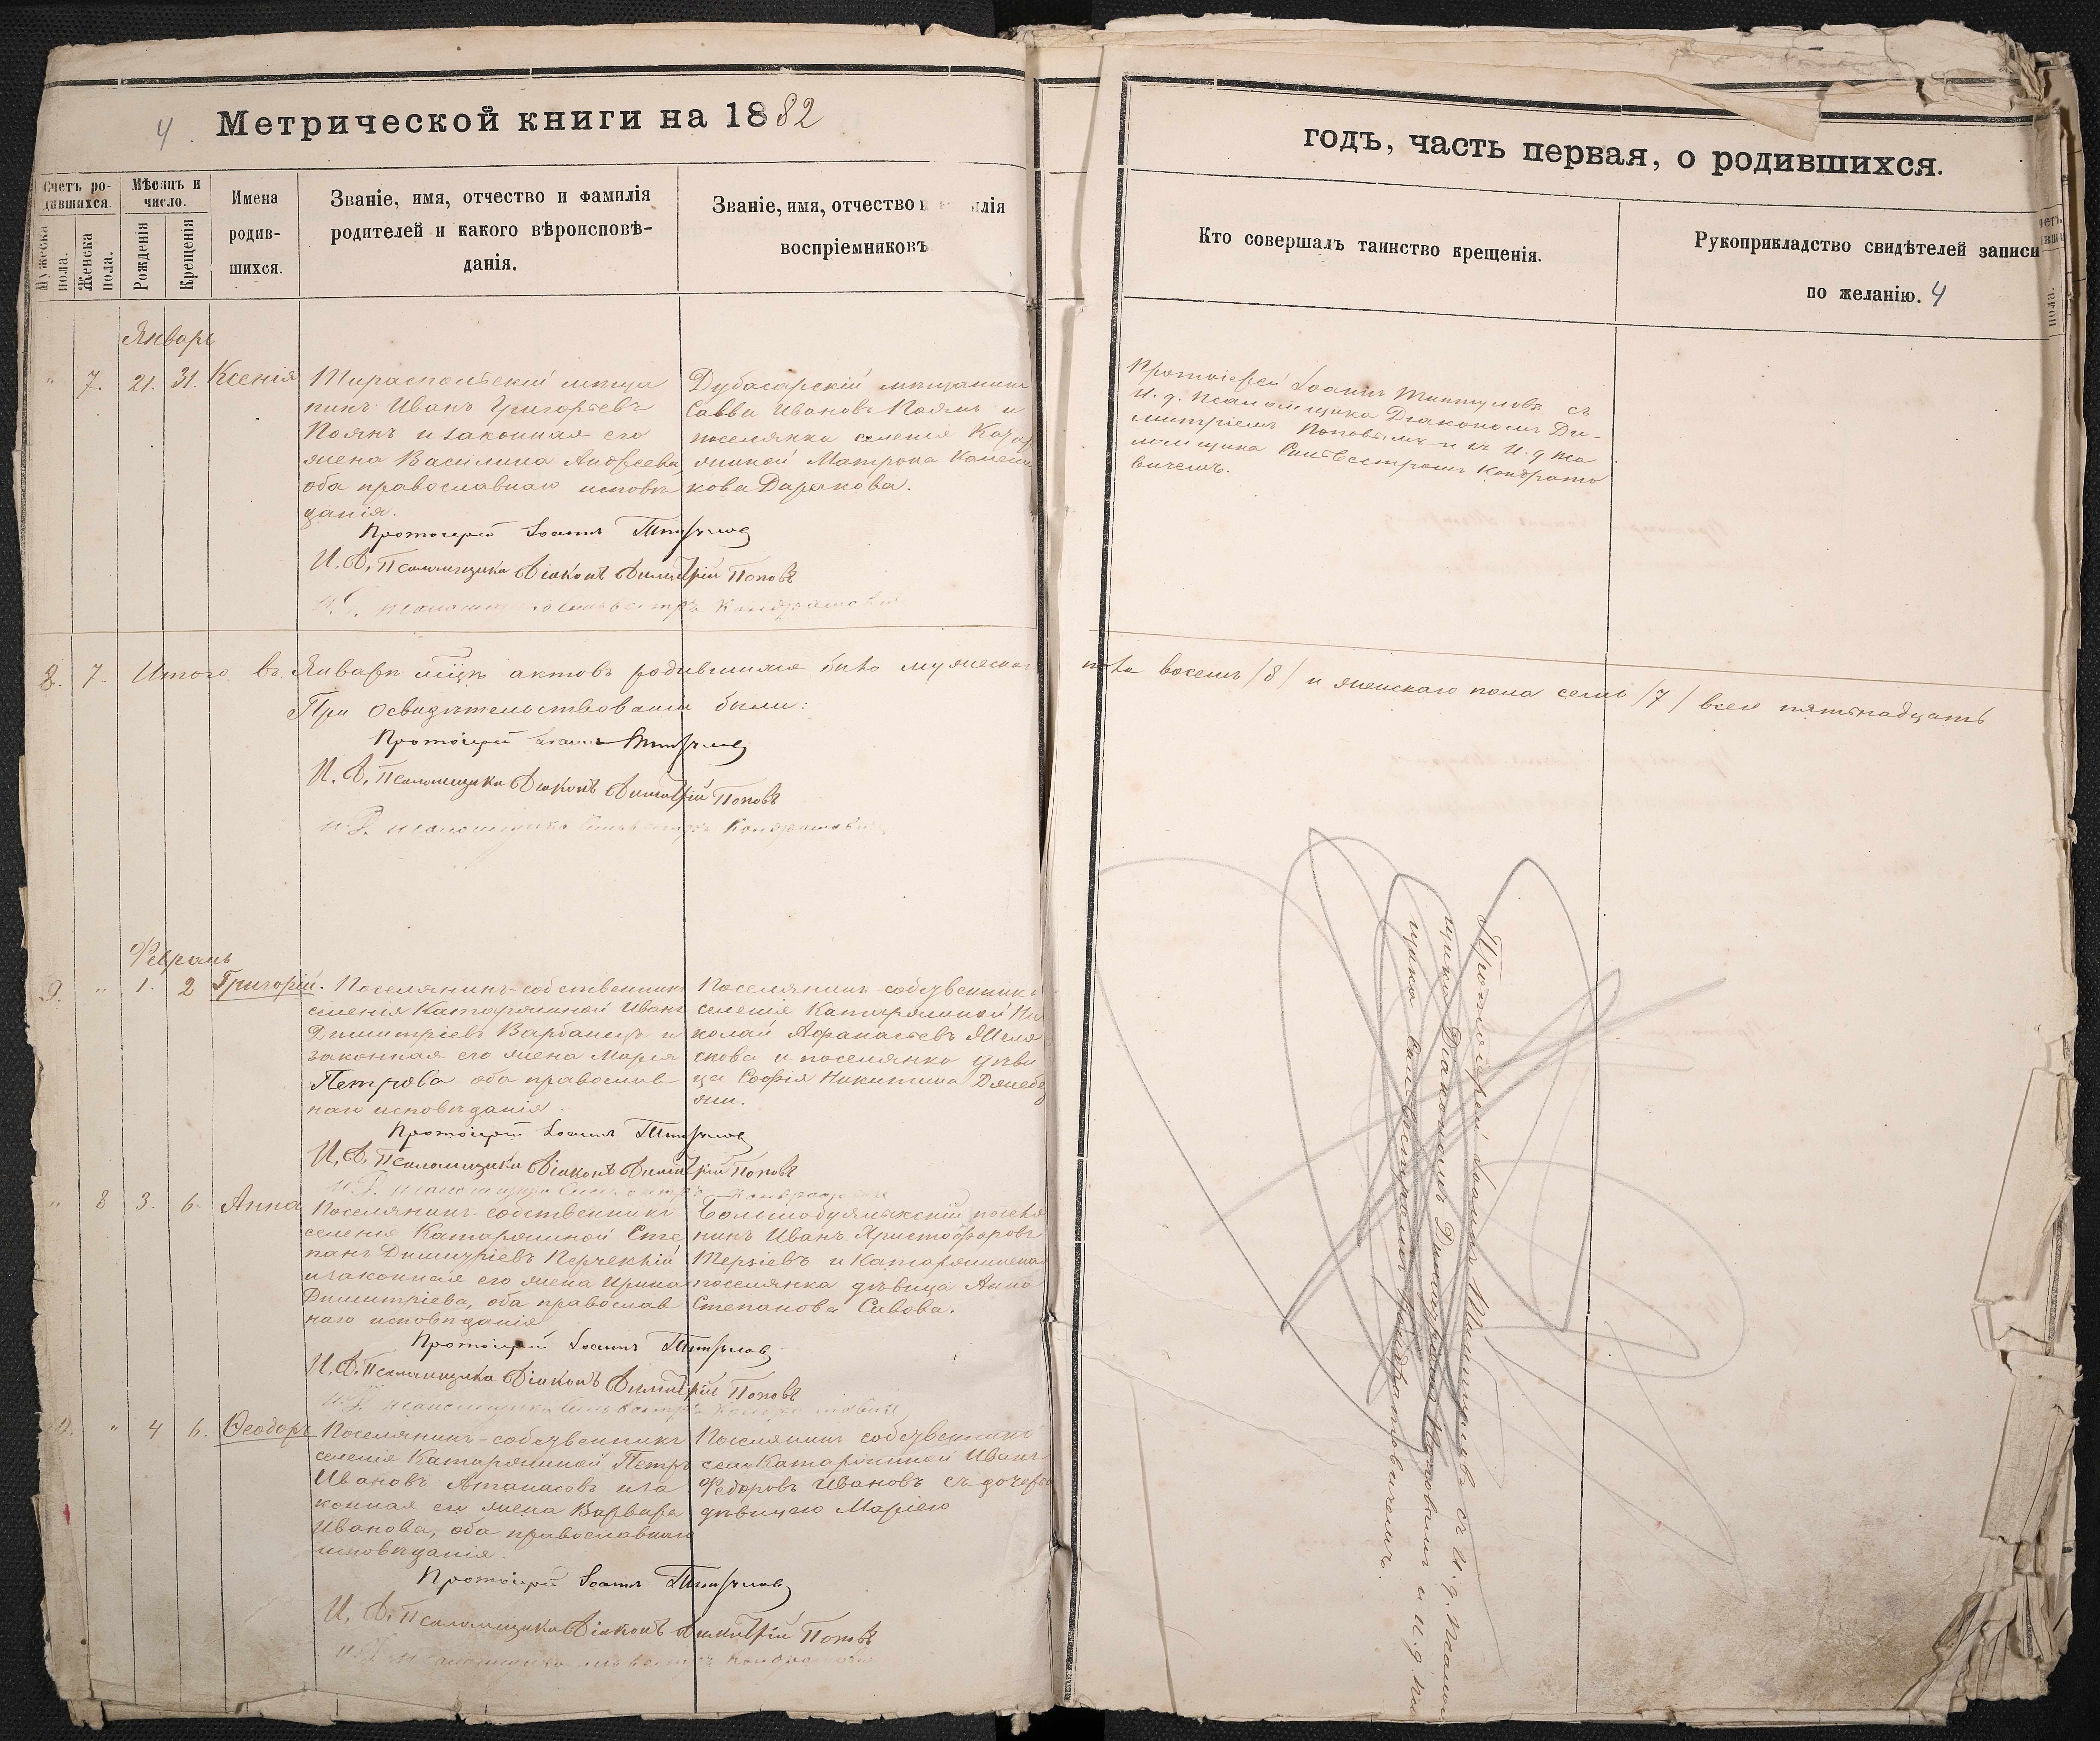 4 Метрической книги на 1882
годъ, часть первая, о родившихся.
Счетъ ро-
дившихся.
Мужеска пола.
Женска пола.
Мѣсяцъ и
число.
Рожденія
Крещенія
Имена
родив-
шихся.
Званіе, имя, отчество и фамилія
родителей и какого вѣроисповѣ-
данія.
Званіе, имя, отчество и лія
воспріемниковъ
Кто совершалъ таинство крещенія.
Рукоприкладство свидѣтелей записи
по желанію. 4
Январь
" 7. 21. 31. Ксенія
Тираспольскій мѣща
нинъ Иванъ Григорьевъ
Поянъ и законная его
жена Василина Андреева
оба православнаго исповѣ
данія.
Дубасарскій мѣщанинъ
Савва Ивановъ Поянъ и
поселянка селенія
Матрона
Даракова.
Протоіерей Іоаннъ съ
И. д. псаломщика Діакономъ Ди-
митріемъ Поповымъ и съ И. д. пса
ломщика Сильвестромъ Кондрато
вичемъ.
Протоіерей Іоаннъ
И. Д. Псаломщика Діаконъ Димитрій Поповъ
И. Д. псаломщика Сильвестръ Кондратовичъ
8. 7. Итого въ Январѣ м-цѣ актовъ родившихся было мужескаго
пола восемь /8/ и женскаго пола семь /7/ всего пятьнадцать
При освидѣтельствованіи были:
Протоіерей Іоаннъ
И. Д. Псаломщика Діаконъ Димитрій Поповъ
И. Д. псаломщика Сильвестръ Кондратовичъ
Февраль
9. " 1. 2 Григорій.
Поселянинъ-собственникъ
селенія Катаржиной Иванъ
Димитріевъ и
законная его жена Марія
Петрова оба православ
наго исповѣданія.
Поселянинъ собственникъ
селенія Катаржиной Ни
колай Афанасьевъ
и поселянка дѣви
ца Софія Никитина
Протоіерей Іоаннъ съ И. д. псалом
щика Діакономъ Димитріемъ Поповымъ и И. д. пса
щика Сильвестромъ Кондратовичемъ.
Протоіерей Іоаннъ
И. Д. Псаломщика Діаконъ Димитрій Поповъ
И. Д. псаломщика Сильвестръ Кондратовичъ
" 8 3. 6. Анна
Поселянинъ-собственникъ
селенія Катаржиной Сте
панъ Димитріевъ
и законная его жена Ирина
Димитріева, оба православ
наго исповѣданія
Большобуялыкскій поселя
нинъ Иванъ Христофоровъ
Терзіевъ и Катаржинская
поселянка дѣвица Анна
Степанова Савова.
Протоіерей Іоаннъ
И. Д. Псаломщика Діаконъ Димитрій Поповъ
И. Д. псаломщика Сильвестръ Кондратовичъ
10. " 4 6. Ѳеодоръ
Поселянинъ-собственникъ
селенія Катаржиной Петръ
Ивановъ Атанасовъ и за
конная его жена Варвара
Иванова, оба православнаго
исповѣданія.
Поселянинъ собственникъ
села Катаржиной Иванъ
Федоровъ Ивановъ съ дочерью
дѣвицею Маріею
Протоіерей Іоаннъ
И. Д. Псаломщика Діаконъ Димитрій Поповъ
И. Д. псаломщика Сильвестръ Кондратовичъ